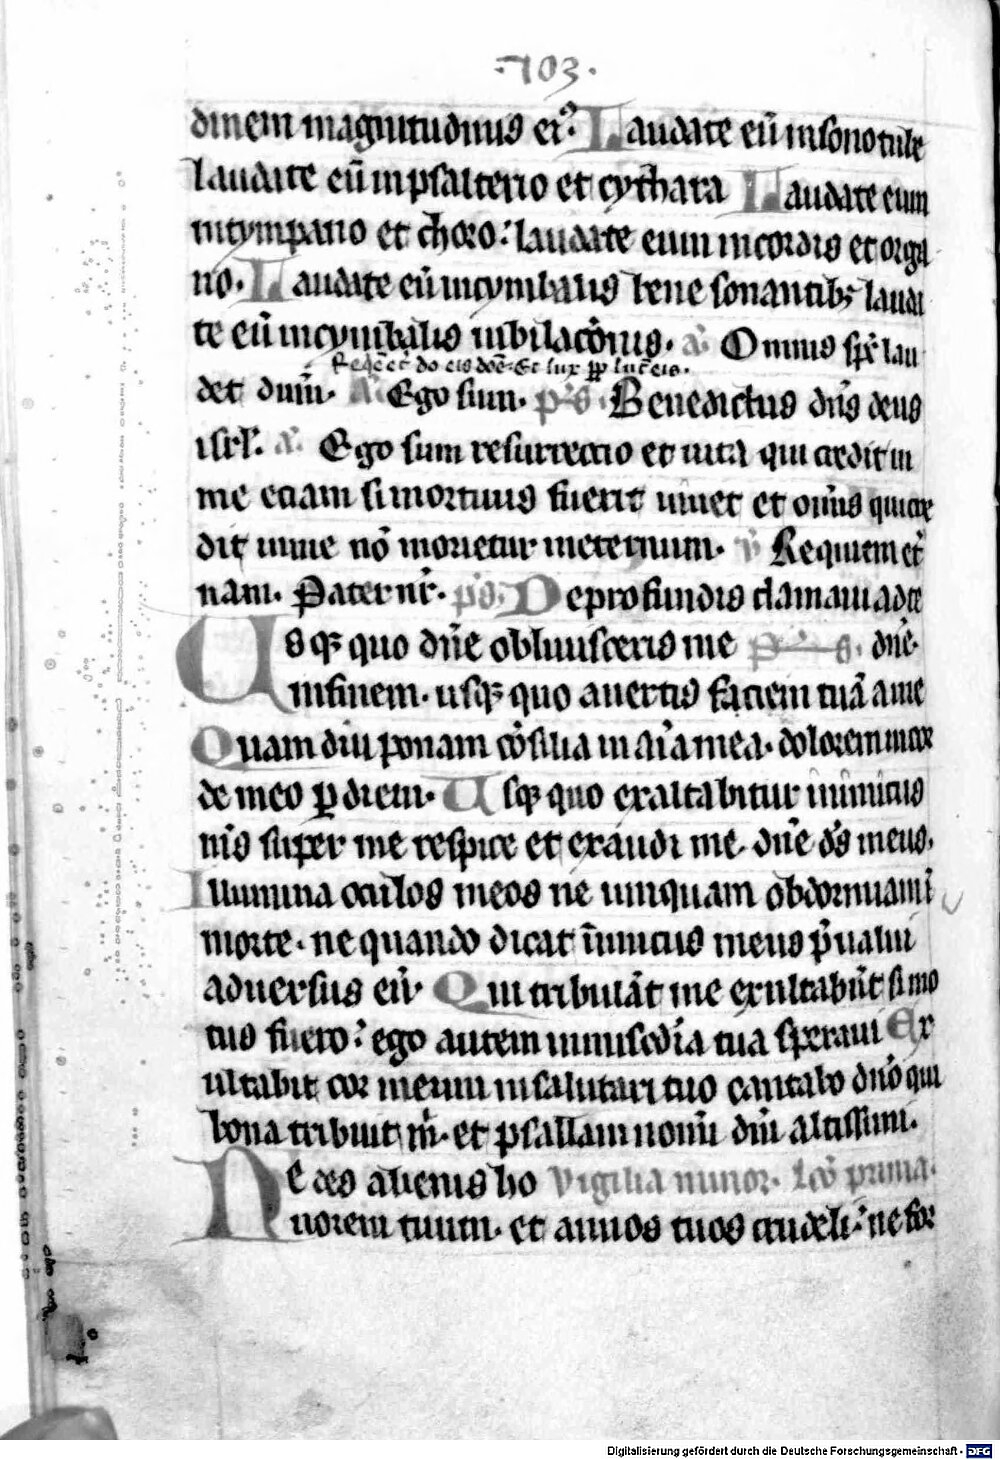 ·703·
dinem magnitudinis ei⁹· Laudate eū in sono tube
laudate eū in psalterio et cythara Laudate eum
in tympano et choro: laudate eum in cordis et orga
no· Laudate eū in cymbalis bene sonantibꝫ lauda
te eū in cymbalis iubilacōnis· a᷑ Omnis spc̄ lau
Reqē et̄ do eis dōe· Et lux ꝑp luc eis·
det dnm̄· A᷑ Ego sum· p̄s Benedictus dn̄s deus
isrl̄· a᷑ Ego sum resurrectio et uita qui credit in
me eciam si mortuus fuerit uiuet et om̄is qui cre
dit in me nō morietur in eternum· v̄ Requiem et̄
nam· Pater nr̄· p̄s· De profundis clamaui ad te
Usqꝫ quo dn̄e obliuisceris me p̄s· dn̄e·
in finem· usqꝫ quo auertis faciem tuā a me
Quamdiu ponam cōsilia in aīa mea· dolorem in cor
de meo ꝑ diem· Usqꝫ quo exaltabitur inimicus
me͂s super me respice et exaudi me· dn̄e ds̄ meus·
Illumina oculos meos ne unquam obdormiam ī
morte· ne quando dicat īimicus meus p̄ualui
aduersus eū· Qui tribulāt me exultabūt si mo
tus fuero: ego autem in misc̄dīa tua speraui Ex
ultabit cor meum in salutari tuo cantabo dnō qui
bona tribuit m̄· et psallam nomī dnī altissimi·
Ne des alienis ho Vigilia minor· lcō prima·
norem tuum· et annos tuos crudeli: ne for
Digitalisierung gefördert durch die Deutsche Forschungsgemeinschaft - DFG